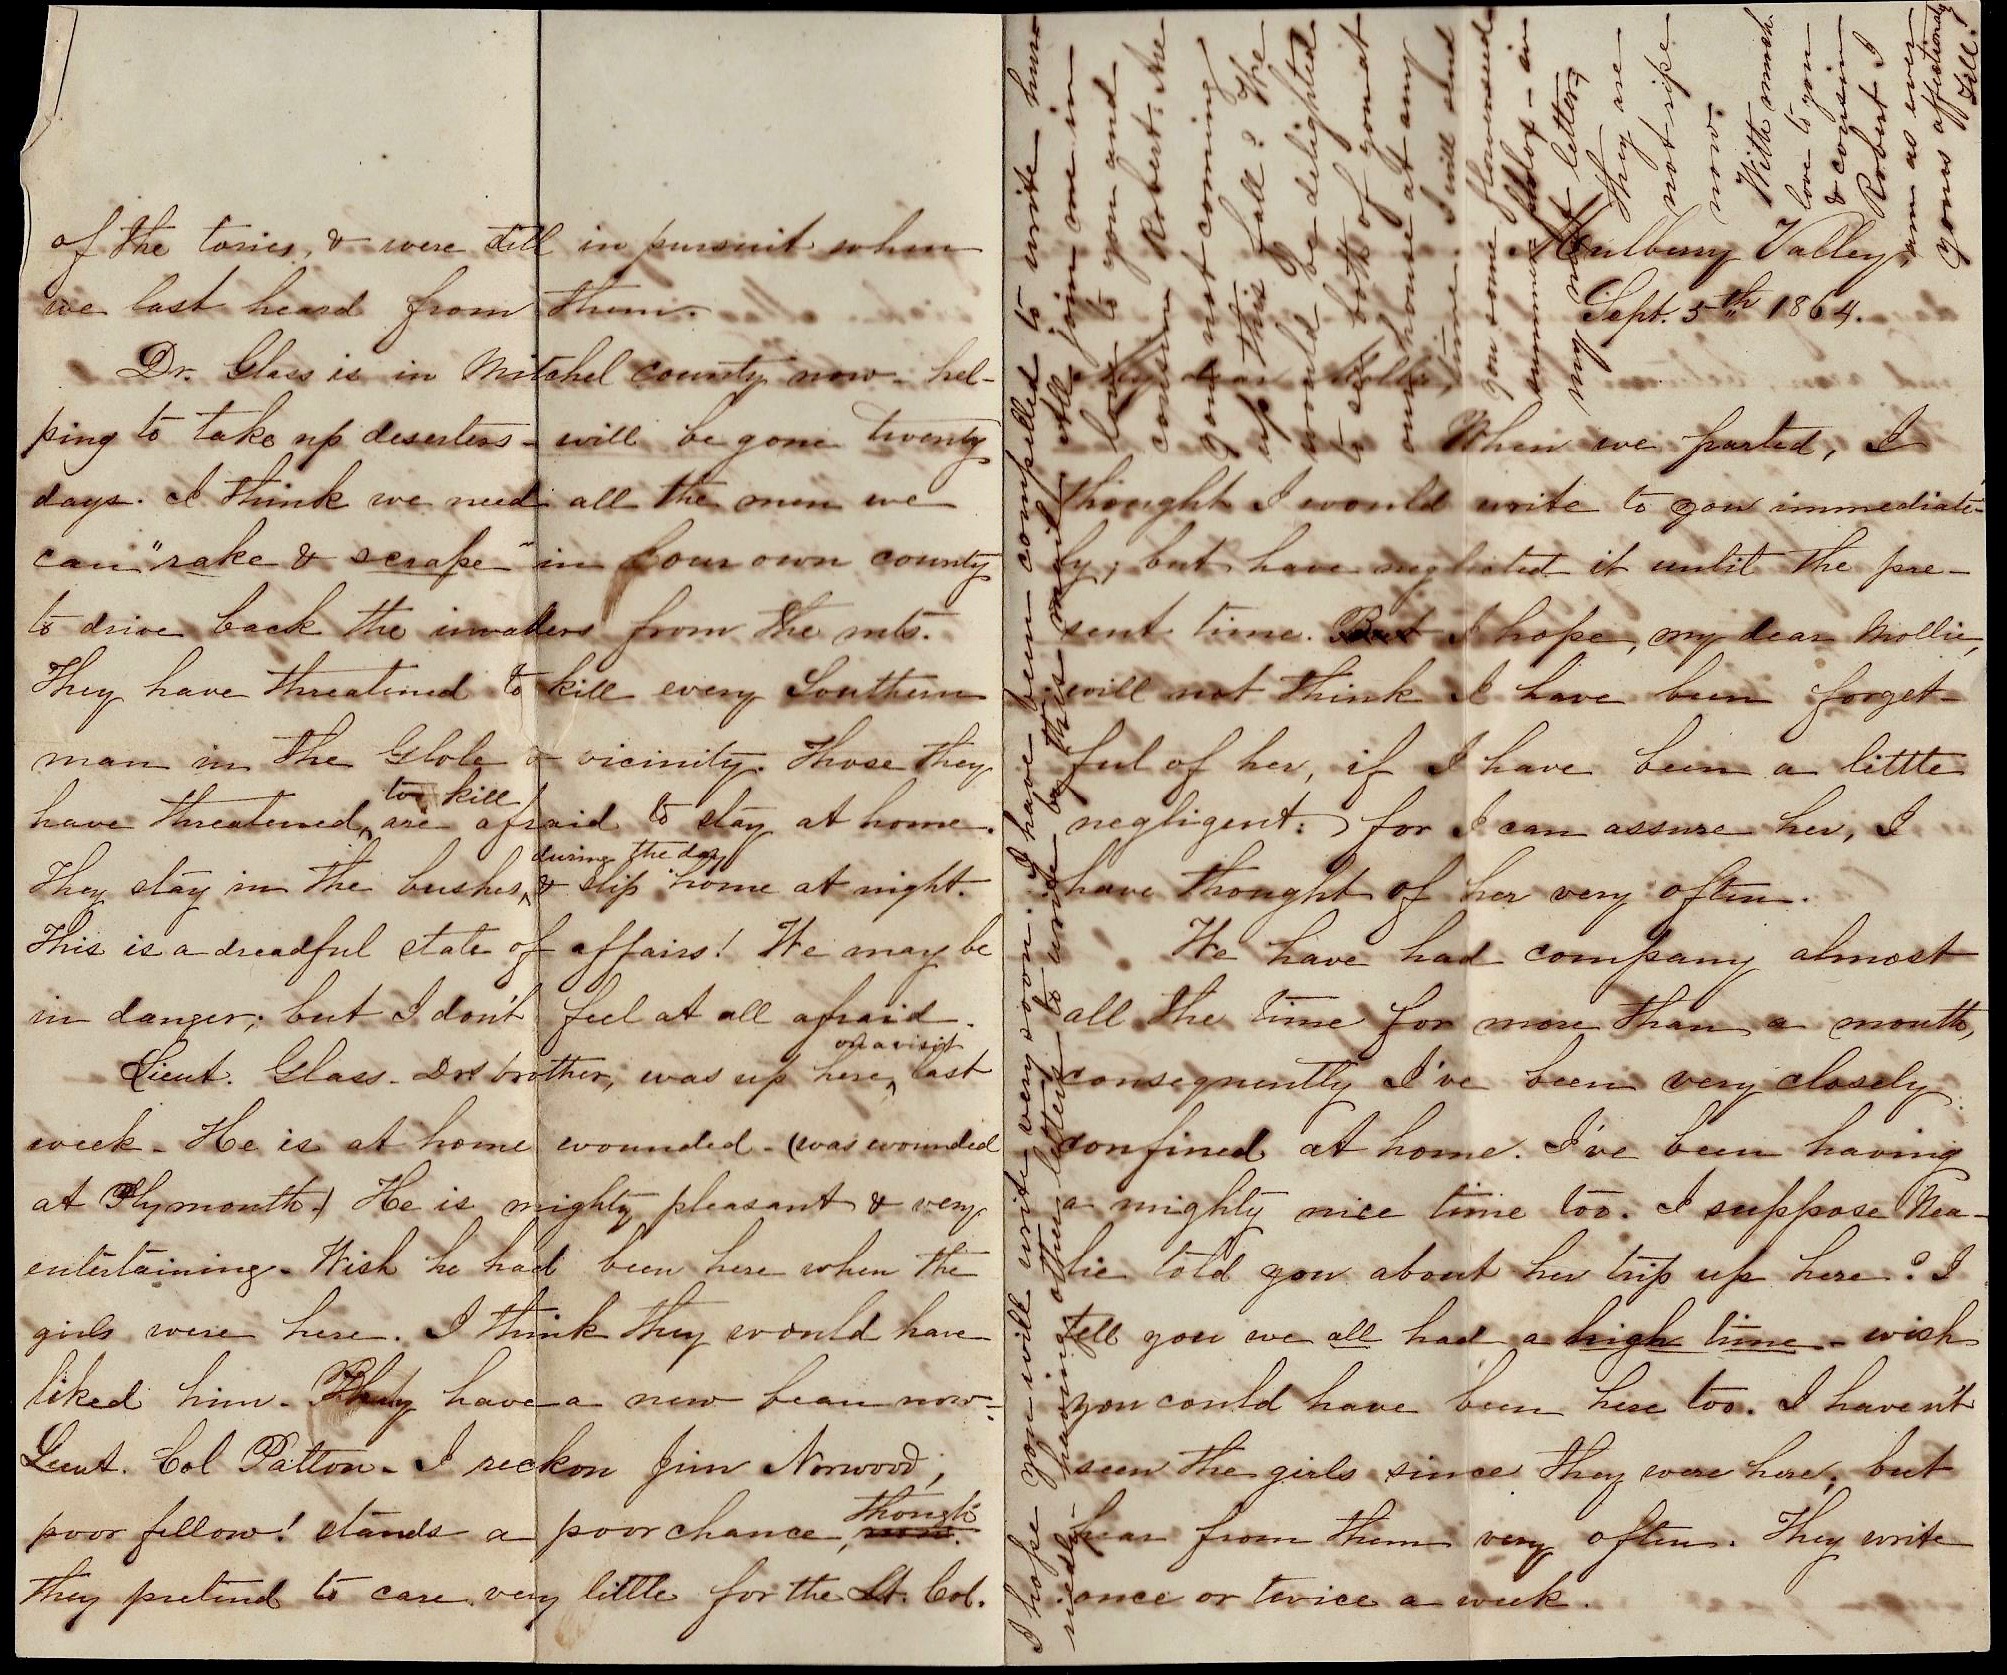 Mulberry Valley,
Sept. 5th 1864.
My dear Mollie,
When we parted, I
thought I would write to you immediate-
ly; but have neglected it until the pre-
sent time. But I hope, my dear Mollie,
will not think I have been forget-
ful of her, if I have been a little
negligent; for I can assure her, I
have thought of her very often.
We have had company almost
all the time for more than a month,
consequently I've been very closely
confined at home. I've been having
a mighty nice time too. I suppose Nea-
lie told you about her trip up here? I
tell you we all had a high time - wish
you could have been here too. I haven't
seen the girls since they were here; but
hear from them very often. They write
once or twice a week.
of the tories, & were still in pursuit when
we last heard from them.
Dr. Glass is in Mitchel county now - hel-
ping to take up deserters - will be gone twenty
days. I think we need all the men we
can "rake & scrape" in our own county
to drive back the invaders from the mts.
They have threatened to kill every Southern
man in the Globe & vicinity. Those they
have threatened to kill are afraid to stay at home.
They stay in the bushes during the day & slip home at night.
This is a dreadful state of affairs! We may be
in danger; but I don't feel at all afraid.
Lieut. Glass - Drs brother, was up here on a visit last
week - He is at home wounded - (was wounded
at Plymouth.) He is mighty pleasant & very
entertaining - Wish he had been here when the
girls were here. I think they would have
liked him - They have a new beau now -
Lieut. Col Patton - I reckon Jim Norwood,
poor fellow! stands a poor chance, though
they pretend to care very little for the Lt. Col.
I hope you will write very soon. I have been compelled to write hur-
riedly - having other letters to write by this mail. All join me in
love to you and
cousin Robert. Are
you not coming
up this Fall? We
would be delighted
to see both of you at
our house at any
time. I will send
you some flowerseed
summer phlox - in
my next letter,
They are
not ripe
now.
With much
love to you
& cousin
Robert I
am as ever
yours affectionately
Lill.